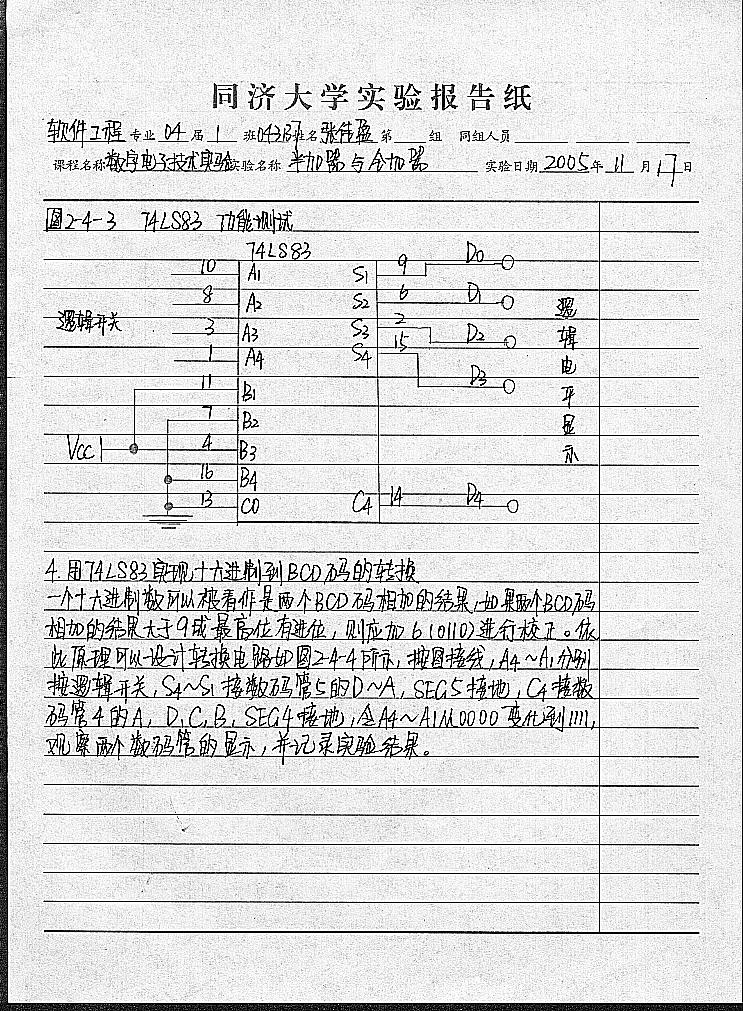 同济大学实验报告纸
软件工程 专业 04 届 1 班 姓名 张 第 组 同组人员
课程名称 数字电子技术实验 实验名称 半加器与全加器 实验日期 2005 年 11 月 17 日
图2-4-3 74LS83 功能测试
74LS83
10 A1 S1 9 D0
8 A2 S2 6 D1
逻辑开关 3 A3 S3 2 D2
1 A4 S4 15 D3
逻辑电平显示
11 B1
7 B2
Vcc 4 B3
16 B4
13 C0 C4 14 D4
4.用74LS83实现十六进制到BCD码的转换
一个十六进制数可以被看作是两个BCD码相加的结果,如果两个BCD码
相加的结果大于9或最高位有进位,则应加6(0110)进行校正。依
此原理可以设计转换电路如图2-4-4所示,按图接线,A4~A1分别
接逻辑开关,S4~S1接数码管5的D~A,SEG5接地,C4接数
码管4的A,D,C,B,SEG4接地,令A4~A1从0000变化到1111,
观察两个数码管的显示,并记录实验结果。